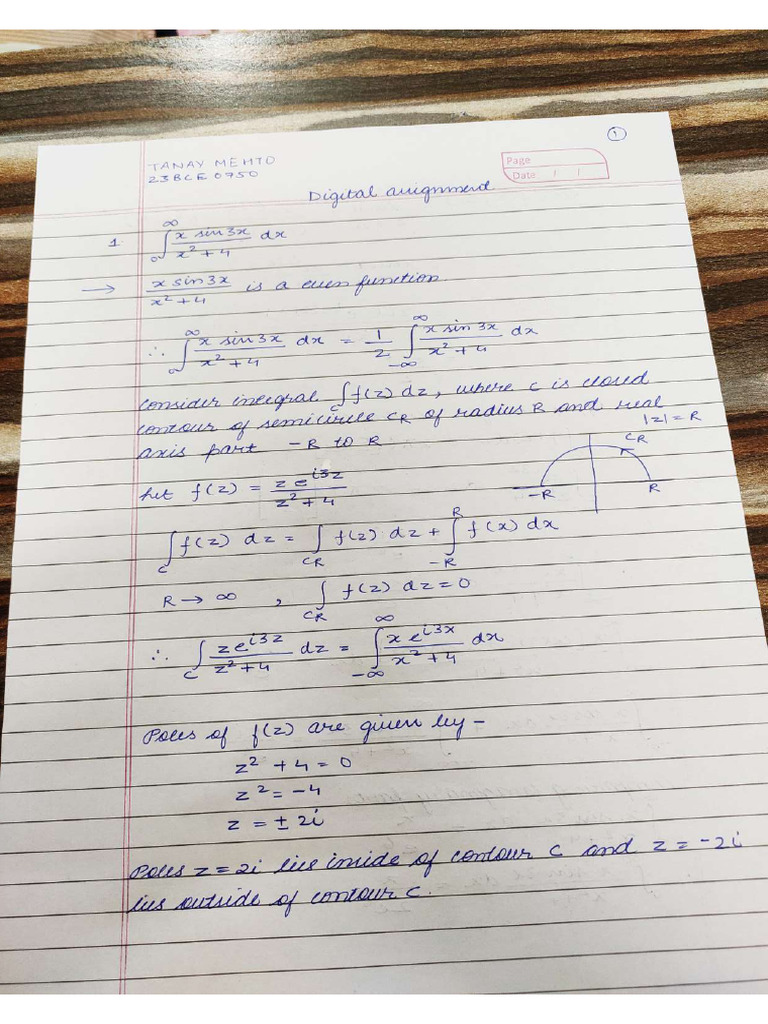 ①
TANAY MEHTO
23BCE0750
Page
Date / /
Digital assignment
1. ∫₀^∞ x sin 3x / x² + 4 dx
→ x sin 3x / x² + 4 is a even function.
∴ ∫₀^∞ x sin 3x / x² + 4 dx = 1/2 ∫_{-∞}^∞ x sin 3x / x² + 4 dx
Consider integral ∫_C f(z) dz, where C is closed
contour of semicircle C_R of radius R and real
axis part -R to R
|z| = R
C_R
-R R
Let f(z) = z e^{i3z} / z² + 4
∫_C f(z) dz = ∫_{C_R} f(z) dz + ∫_{-R}^R f(x) dx
R → ∞ , ∫_{C_R} f(z) dz = 0
∴ ∫_C z e^{i3z} / z² + 4 dz = ∫_{-∞}^∞ x e^{i3x} / x² + 4 dx
Poles of f(z) are given by -
z² + 4 = 0
z² = -4
z = ± 2i
Poles z = 2i lies inside of contour C and z = -2i
lies outside of contour C.